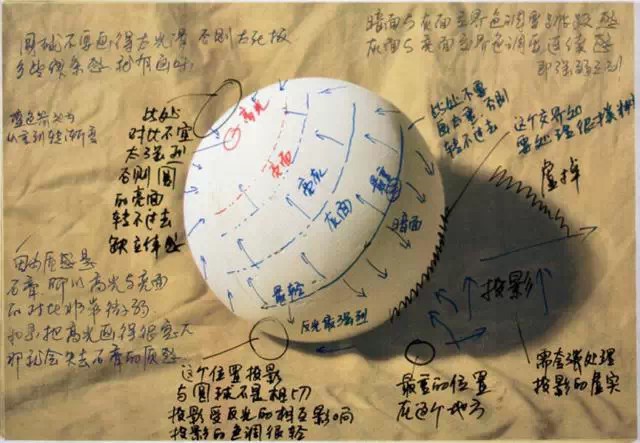 圆球不要画得太光滑 否则太死板
多些线条感 才有画味
暗面与灰面交界色调要
灰面与亮面交界色调要连续感
即强弱区别
蓝色箭头为
从重到轻渐变
此处
对比不宜
太强烈
否则圆
的亮面
转不过去
缺立体感
高光
亮面
亮灰
灰面
最重
暗面
最轻
反光最强烈
此处不要
画太重 否则
转不过去
这个交界如
要处理很
虚掉
投影
因为质感是
石膏 所以高光与亮面
的对比非常微弱
如果把高光画得很突出
那就会失去石膏的质感
这个位置投影
与圆球不是相切
投影受反光的相互影响
投影的色调很轻
最重的位置
在这个地方
需含蓄处理
投影的虚实